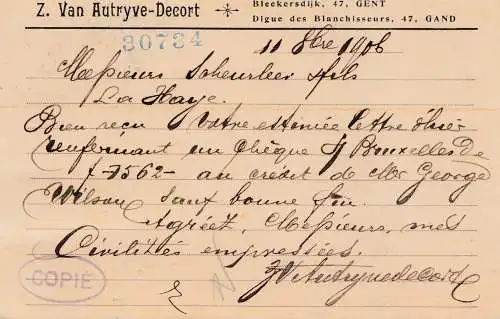 Z. Van Autryve-Decort
Bleekersdijk, 47, GENT
Digue des Blanchisseurs, 47, GAND
30734
11 Xbre 1906
Messieurs Scheurleer & fils
La Haye.
Bien reçu votre estimée lettre d'hier
renfermant un chèque s/ Bruxelles de
f -7562- au crédit de Mr George
Wilson sauf bonne fin.
Agréez, Messieurs, mes
Civilités empressées.
ZVAutryvedecort
COPIÉ